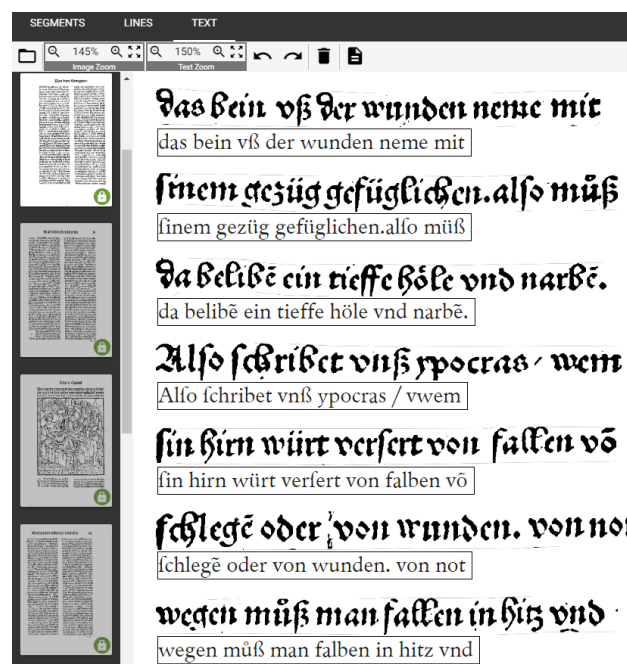 SEGMENTS LINES TEXT
145% 150%
Image Zoom Text Zoom
das bein vß der wunden neme mit
das bein vß der wunden neme mit
ſinem gezüg gefüglichen.alſo můſß
ſinem gezüg gefüglichen.alſo müß
da belibẽ ein tieffe höle vnd narbẽ.
da belibẽ ein tieffe höle vnd narbẽ.
Alſo ſchribet vnß ypocras / wem
Alſo ſchribet vnß ypocras / vwem
ſin hirn würt verſert von fallen võ
ſin hirn würt verſert von falben võ
ſchlegẽ oder von wunden. von not
ſchlegẽ oder von wunden. von not
wegen můß man fallen in hitz vnd
wegen můß man falben in hitz vnd